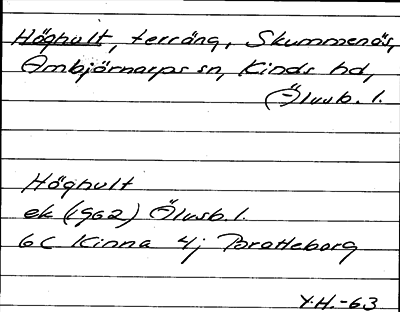 Höghult, terräng, Skummenäs,
Ambjörnarps sn, Kinds hd,
Älvsb. l.
Höghult
ek (1962) Älvsb. l.
6C Kinna 4j Borotteborg
Y.H.-63